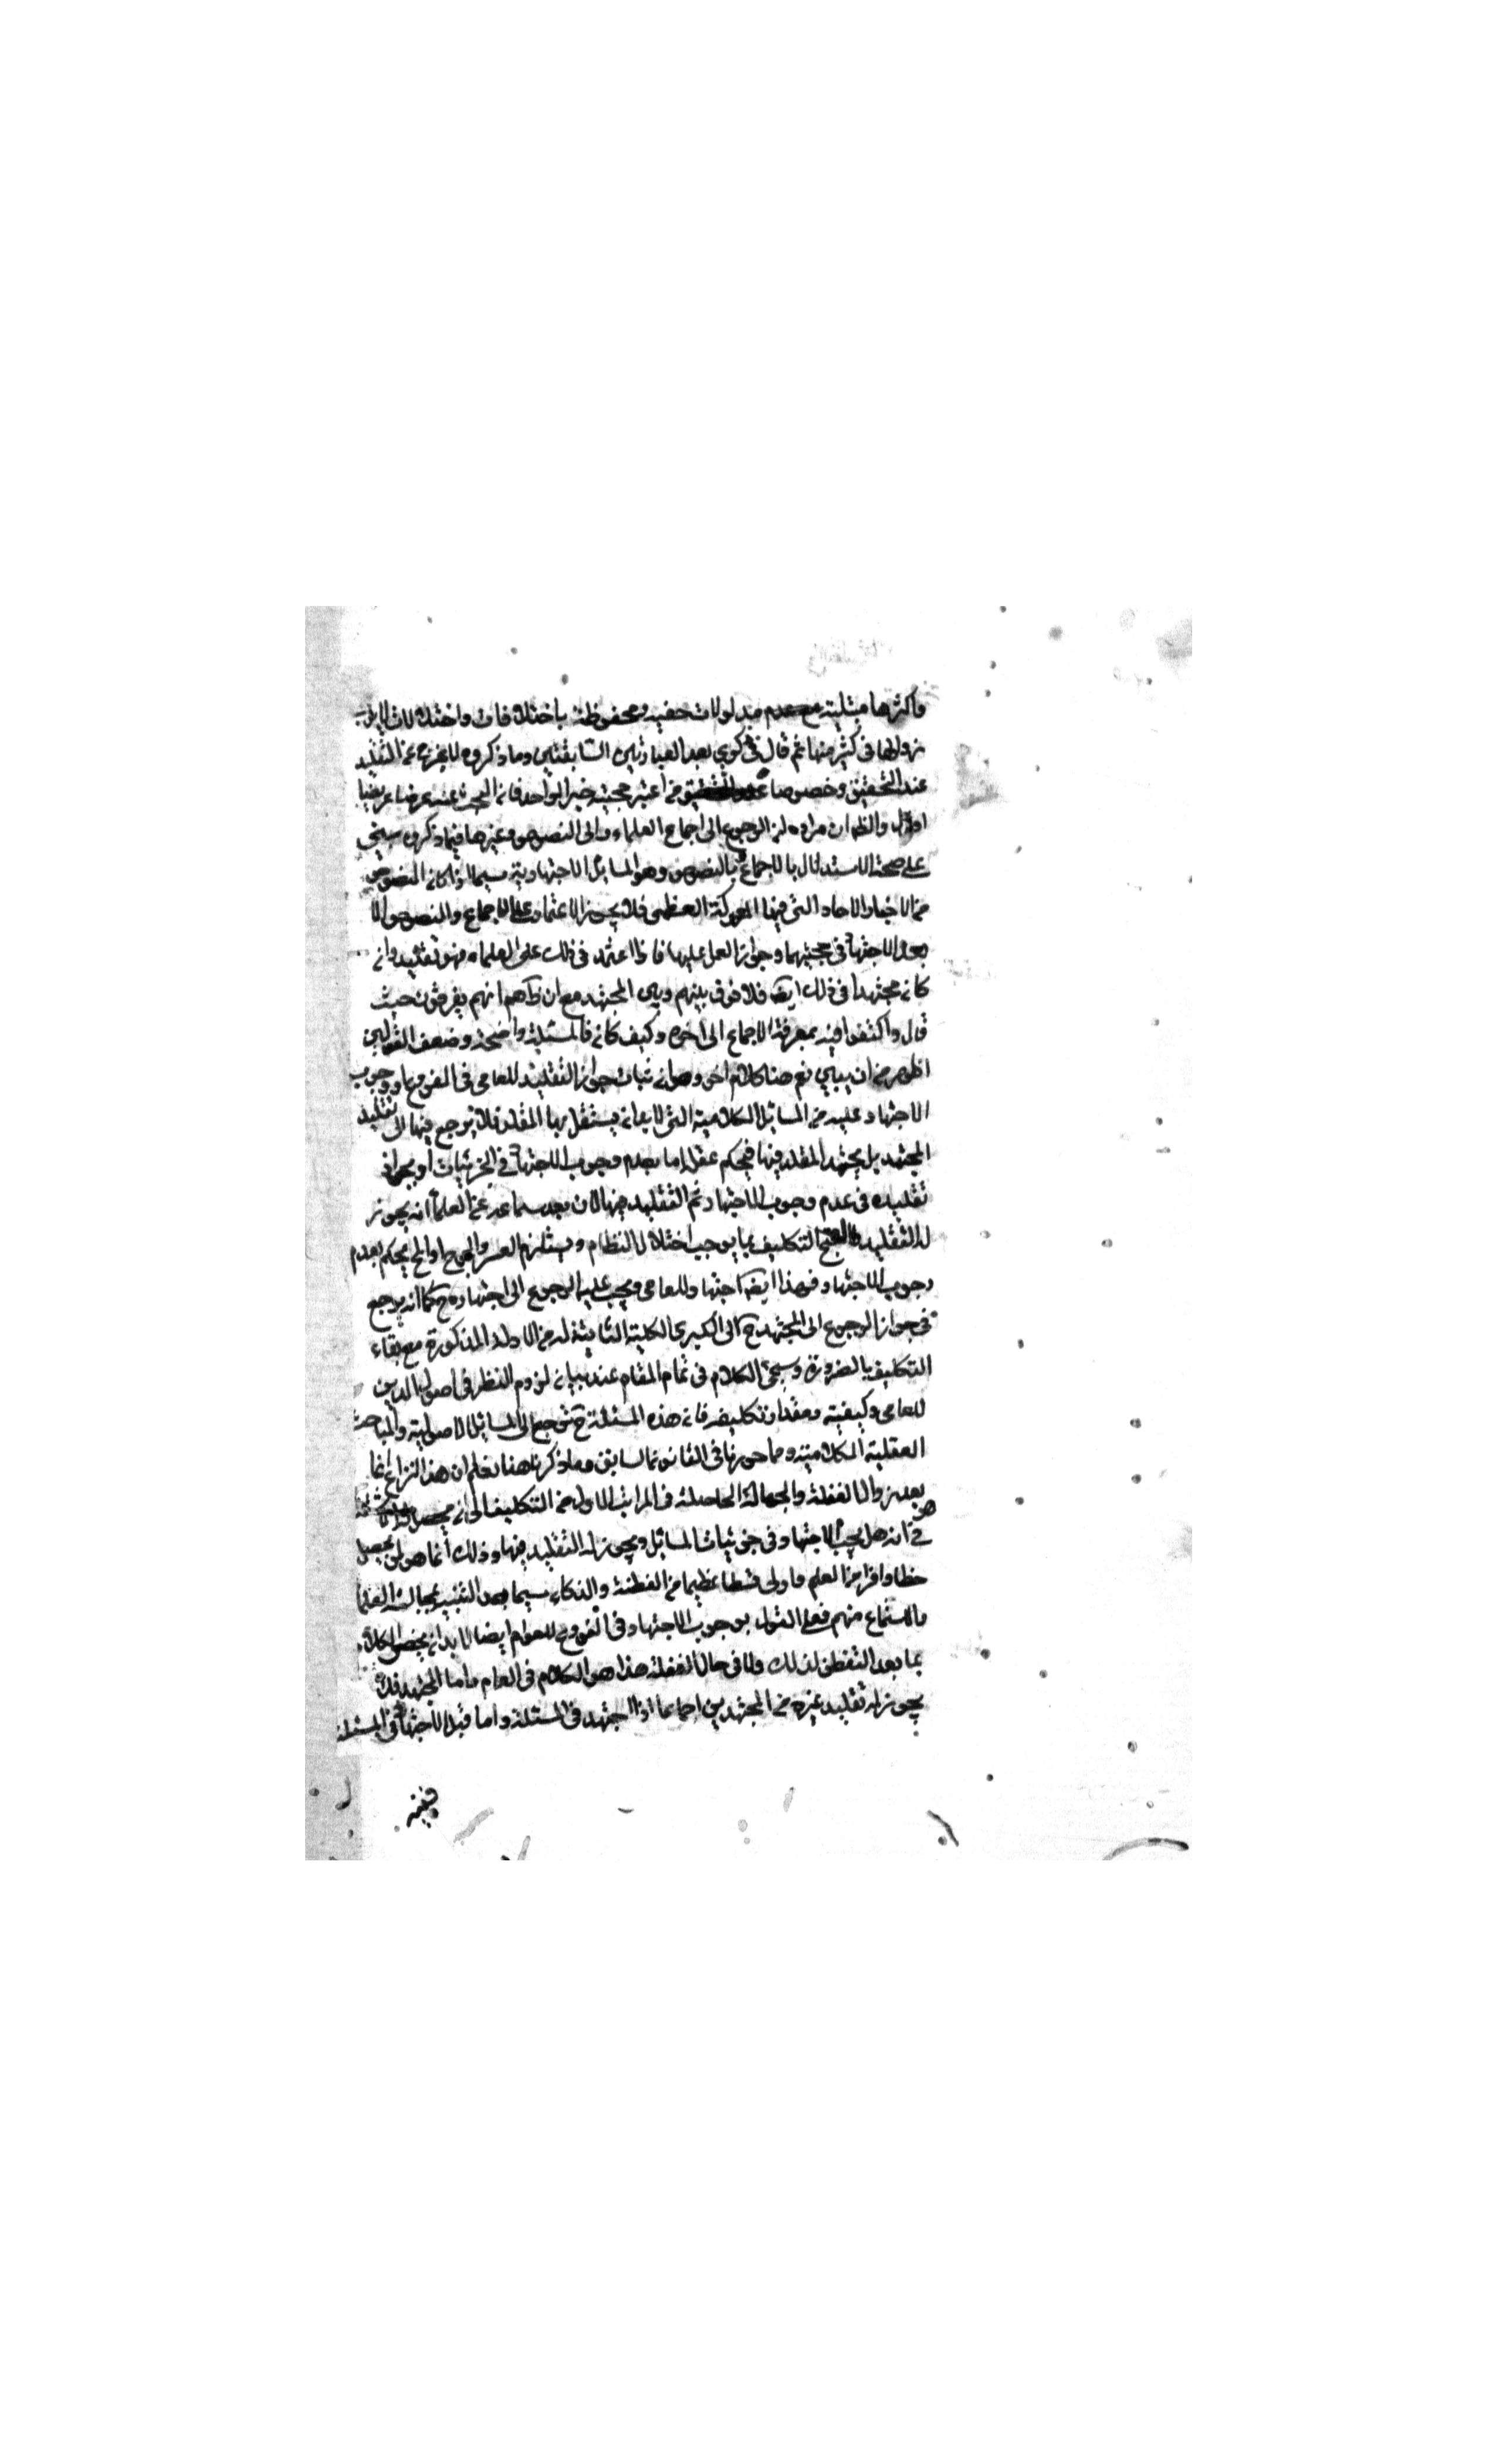 واكثرها مبتلية مع عدم مدلولات خفيه ومحفوظة باختلافات واختلالات لا يرجى
زوالها فى كثير منها ثم قال فى كرى بعد العبارتين السابقتين وما ذكروه لا يخرج عن التقليد
عند التحقيق وخصوصا عند من اعتبر حجية خبر الواحد فان البحث عنه عرضا عريضا
اقول والظ ان مراده ان الرجوع الى اجماع العلماء والى النصوص وغيرها فيما ذكروه مبنى
على صحة الاستدلال بالاجماع بالنصوص وهو المسائل الاجتهادية سيما اذا كان النصوص
من الاخبار الاحاد التى فيها المعركة العظمى فلا يجوز الاعتماد على الاجماع والنصوص الا
بعد الاجتهاد فى حجيتهما وجواز العمل عليها فاذا اعتمد فى ذلك على العلماء فهو تقليد وان
كان مجتهدا فى ذلك ايضا فلا فرق بينهم وبين المجتهد مع ان ظاهرهم انهم يفرقون حيث
قال واكتفوا فيه بمعرفة الاجماع الى اخره وكيف كان فالمسئلة واضحة وضعف القولين
اظهر من ان يبين نعم هنا كلام اخر وهو ان ثبات جواز التقليد للعامى فى الفروع او وجوب
الاجتهاد عليه من المسائل الكلامية التى لا بد ان يستقل بها المقلد فلا يرجع فيها الى تقليد
المجتهد بل يجتهد المقلد فيها فيحكم عقله اما بعدم وجوب الاجتهاد فى الجزئيات او بجواز
تقليده فى عدم وجوب الاجتهاد ثم التقليد فيها لان بعد سماعه عن العلماء انه يجوز
له التقليد ولقبح التكليف بما يوجب اختلال النظام ويستلزم العسر والحرج او المح يحكم بعدم
وجوب الاجتهاد فهذا ايضا اجتهاد للعامى ويجب عليه الرجوع الى اجتهاده ح كما انه يرجع
فى جواز الرجوع الى المجتهد ح الى الكبرى الكلية الثابتة له من الادلة المذكورة مع بقاء
التكليف بالضرورة وسيجئ الكلام فى تمام المقام عند بيان لزوم النظر فى اصول الدين
للعامى وكيفيته ومقدار تكليفه فان هذه المسئلة ح ترجع الى المسائل الاصولية والمباحث
العقلية الكلامية ومما حررنا فى القانون السابق وما ذكرنا هنا تعلم ان هذا النزاع انما
هو بعد زوال الغفلة والجهالة الحاصلة فى المراتب الاول من التكليف الى ان
فى انه هل يجب الاجتهاد فى جزئيات المسائل ويجوز له التقليد فيها وذلك انما هو لمن يحصل
حظا وافرا من العلم واولى قسطا عظيما من الفطنة والذكاء سيما بعد التنبيه بمجالسة العلماء
والاستماع منهم فعلى القول بوجوب الاجتهاد فى الفروع للعوام ايضا لا بد ان يخص الكلام
بما بعد التفطن لذلك والا فى حال الغفلة هذا هو الكلام فى العام واما المجتهد فلا
يجوز له تقليد غيره من المجتهدين اجماعا اذا اجتهد فى المسئلة واما قبل الاجتهاد فى المسئلة
ففيه